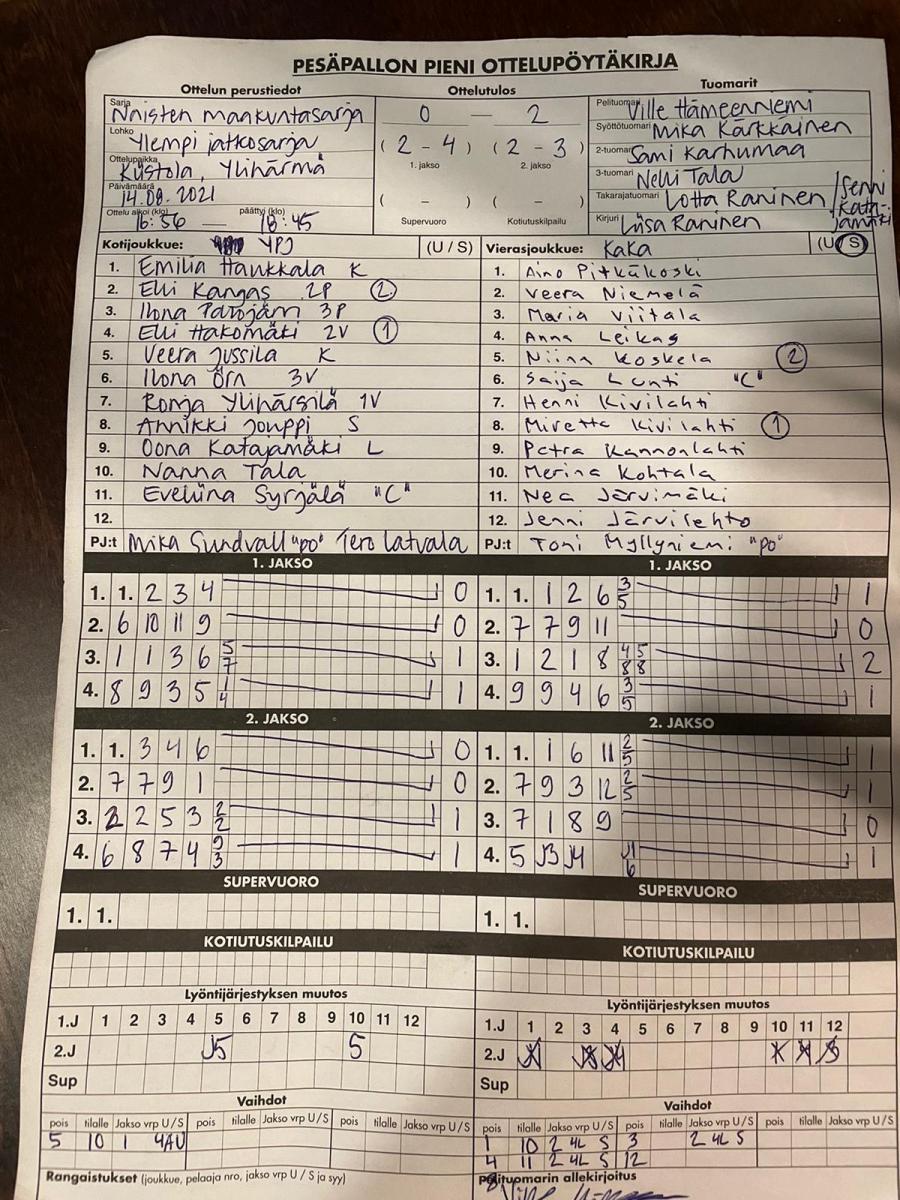 PESÄPALLON PIENI OTTELUPÖYTÄKIRJA
Ottelun perustiedot
Sarja Naisten maakuntasarja
Lohko Ylempi jatkosarja
Ottelupaikka Kustola, Ylihärmä
Päivämäärä 14.08.2021
Ottelu alkoi (klo) 16:56 päättyi (klo) 18:45
Ottelutulos
0 – 2
(2 - 4) (2 - 3)
1. jakso 2. jakso
( - ) ( - )
Supervuoro Kotiutuskilpailu
Tuomarit
Pelituomari Ville Hämeenniemi
Syöttötuomari Mika Kärkkäinen
2-tuomari Sami Karhumaa
3-tuomari Nelli Tala
Takarajatuomari Lotta Raninen / Senni Katajamäki
Kirjuri Liisa Raninen
Kotijoukkue: YPJ (U / S)
1. Emilia Haukkala K
2. Elli Kangas 2P 2
3. Ilona Patojärvi 3P
4. Elli Hakomäki 2V 1
5. Veera Jussila K
6. Ilona Örn 3V
7. Ronja Ylihärsilä 1V
8. Annikki Jouppi S
9. Oona Katajamäki L
10. Nanna Tala
11. Eveliina Syrjälä "C"
12.
PJ:t Mika Sundvall "PO" Tero Latvala
Vierasjoukkue: KaKa (U / S)
1. Aino Pitkäkoski
2. Veera Niemelä
3. Maria Viitala
4. Anna Leikas
5. Niina Koskela 2
6. Saija Lunti "C"
7. Henni Kivilahti
8. Miretta Kivilahti 1
9. Petra Kannonlahti
10. Merina Kohtala
11. Nea Järvimäki
12. Jenni Järvilehto
PJ:t Toni Myllyniemi "PO"
1. JAKSO
1. 1. 2 3 4 0
2. 6 10 11 9 0
3. 1 1 3 6 5/7 1
4. 8 9 3 5 1/4 1
1. JAKSO
1. 1. 1 2 6 3/5 1
2. 7 7 9 11 0
3. 1 2 1 8 4/8 5/8 2
4. 9 9 4 6 3/5 1
2. JAKSO
1. 1. 3 4 6 0
2. 7 7 9 1 0
3. 2 2 5 3 2/2 1
4. 6 8 7 4 9/3 1
2. JAKSO
1. 1. 1 6 11 2/5 1
2. 7 9 3 12 2/5 1
3. 7 1 8 9 0
4. 5 J3 J4 J1/6 1
SUPERVUORO
1. 1.
SUPERVUORO
1. 1.
KOTIUTUSKILPAILU
KOTIUTUSKILPAILU
Lyöntijärjestyksen muutos
1.J 1 2 3 4 5 6 7 8 9 10 11 12
2.J J5 5
Sup
Lyöntijärjestyksen muutos
1.J 1 2 3 4 5 6 7 8 9 10 11 12
2.J
Sup
Vaihdot
pois tilalle Jakso vrp U / S pois tilalle Jakso vrp U / S pois tilalle Jakso vrp U / S
5 10 1 4AU
Vaihdot
pois tilalle Jakso vrp U / S pois tilalle Jakso vrp U / S pois tilalle Jakso vrp U / S
1 10 2 4L S 3 2 4L S
4 11 2 4L S 12
Rangaistukset (joukkue, pelaaja nro, jakso vrp U / S ja syy)
Pelituomarin allekirjoitus